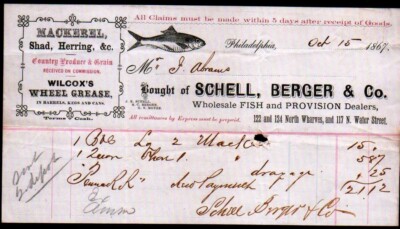 All Claims must be made within 5 days after receipt of Goods.
MACKEREL,
Shad, Herring, &c.
Country Produce & Grain
RECEIVED ON COMMISSION.
WILCOX'S
WHEEL GREASE,
IN BARRELS, KEGS AND CANS.
Terms Cash.
Philadelphia, Oct 15 1867.
Mr J. Abrams
Bought of SCHELL, BERGER & Co.
Wholesale FISH and PROVISION Dealers,
All remittances by Express must be prepaid.
122 and 124 North Wharves, and 117 N. Water Street.
1 Bbl La 2 Mack 15
1 5 87
drayage 25
Payment 21 12
Schell Berger & Co